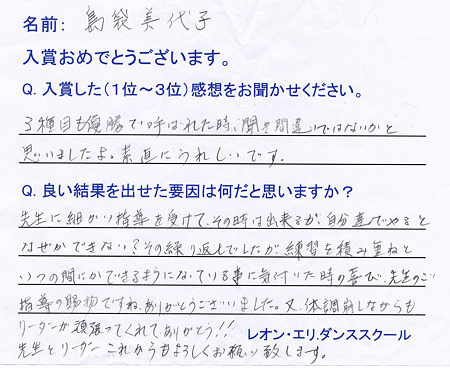 名前: 島袋美代子
入賞おめでとうございます。
Q. 入賞した(1位～3位)感想をお聞かせください。
3種目も優勝で呼ばれた時、聞き間違いではないかと
思いましたよ。素直にうれしいです。
Q. 良い結果を出せた要因は何だと思いますか?
先生に細かい指導を受けて、その時は出来るが、自分達でやると
なぜかできない?その繰り返しでしたが練習を積み重ねと
いつの間にかできるようになっている事に気付いた時の喜び、先生のご
指導の賜物ですね、ありがとうございました。又、体調崩しながらも
リーダーが頑張ってくれて、ありがとう!!
レオン・エリ.ダンススクール
先生とリーダーこれからもよろしくお願い致します。